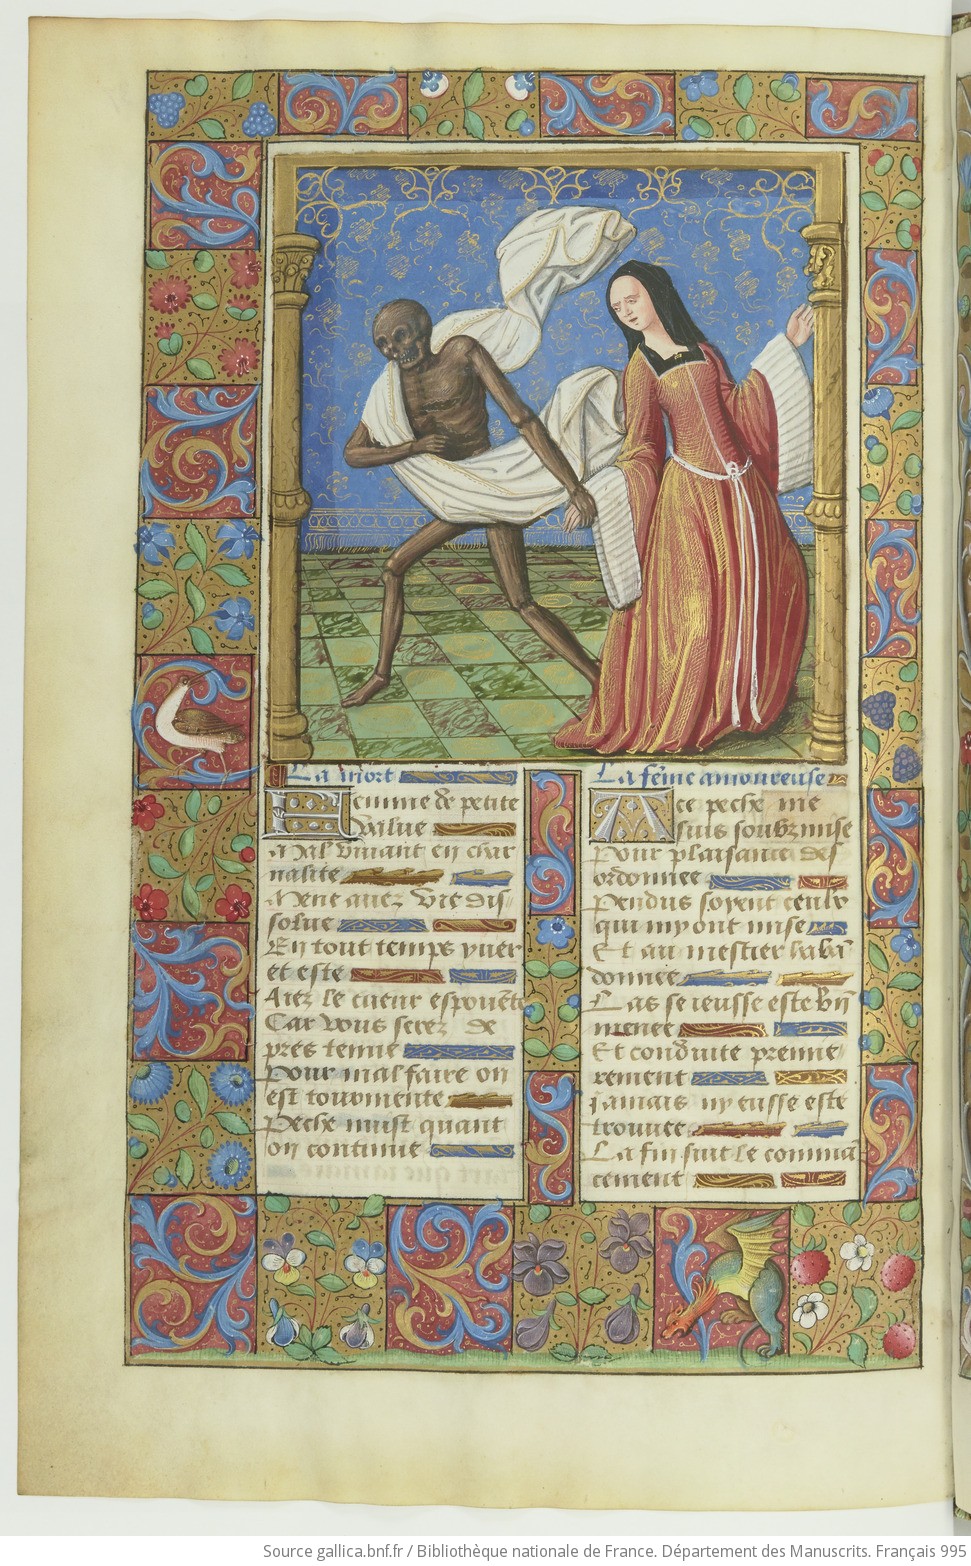 La mort
Femme de petite
value
A mal vivant en char
nalite
Mene avez vie dis-
solue
En tout temps yver
et este
Aiez le cueur espouēte
Car vous serez de
pres tenue
Pour mal faire on
est tourmente
Peche nuist quant
on continue
La fēme amoureuse
A ce peche me
suis soubzmise
Pour plaisance des
ordonnee
Pendus soyent ceulx
qui my ont mise
Et au mestier habā
donnee
Las se ieusse este biē
menee
Et conduite premie
rement
jamais ny eusse este
trouvee
La fin suit le commā
cement
Source gallica.bnf.fr / Bibliothèque nationale de France. Département des Manuscrits. Français 995